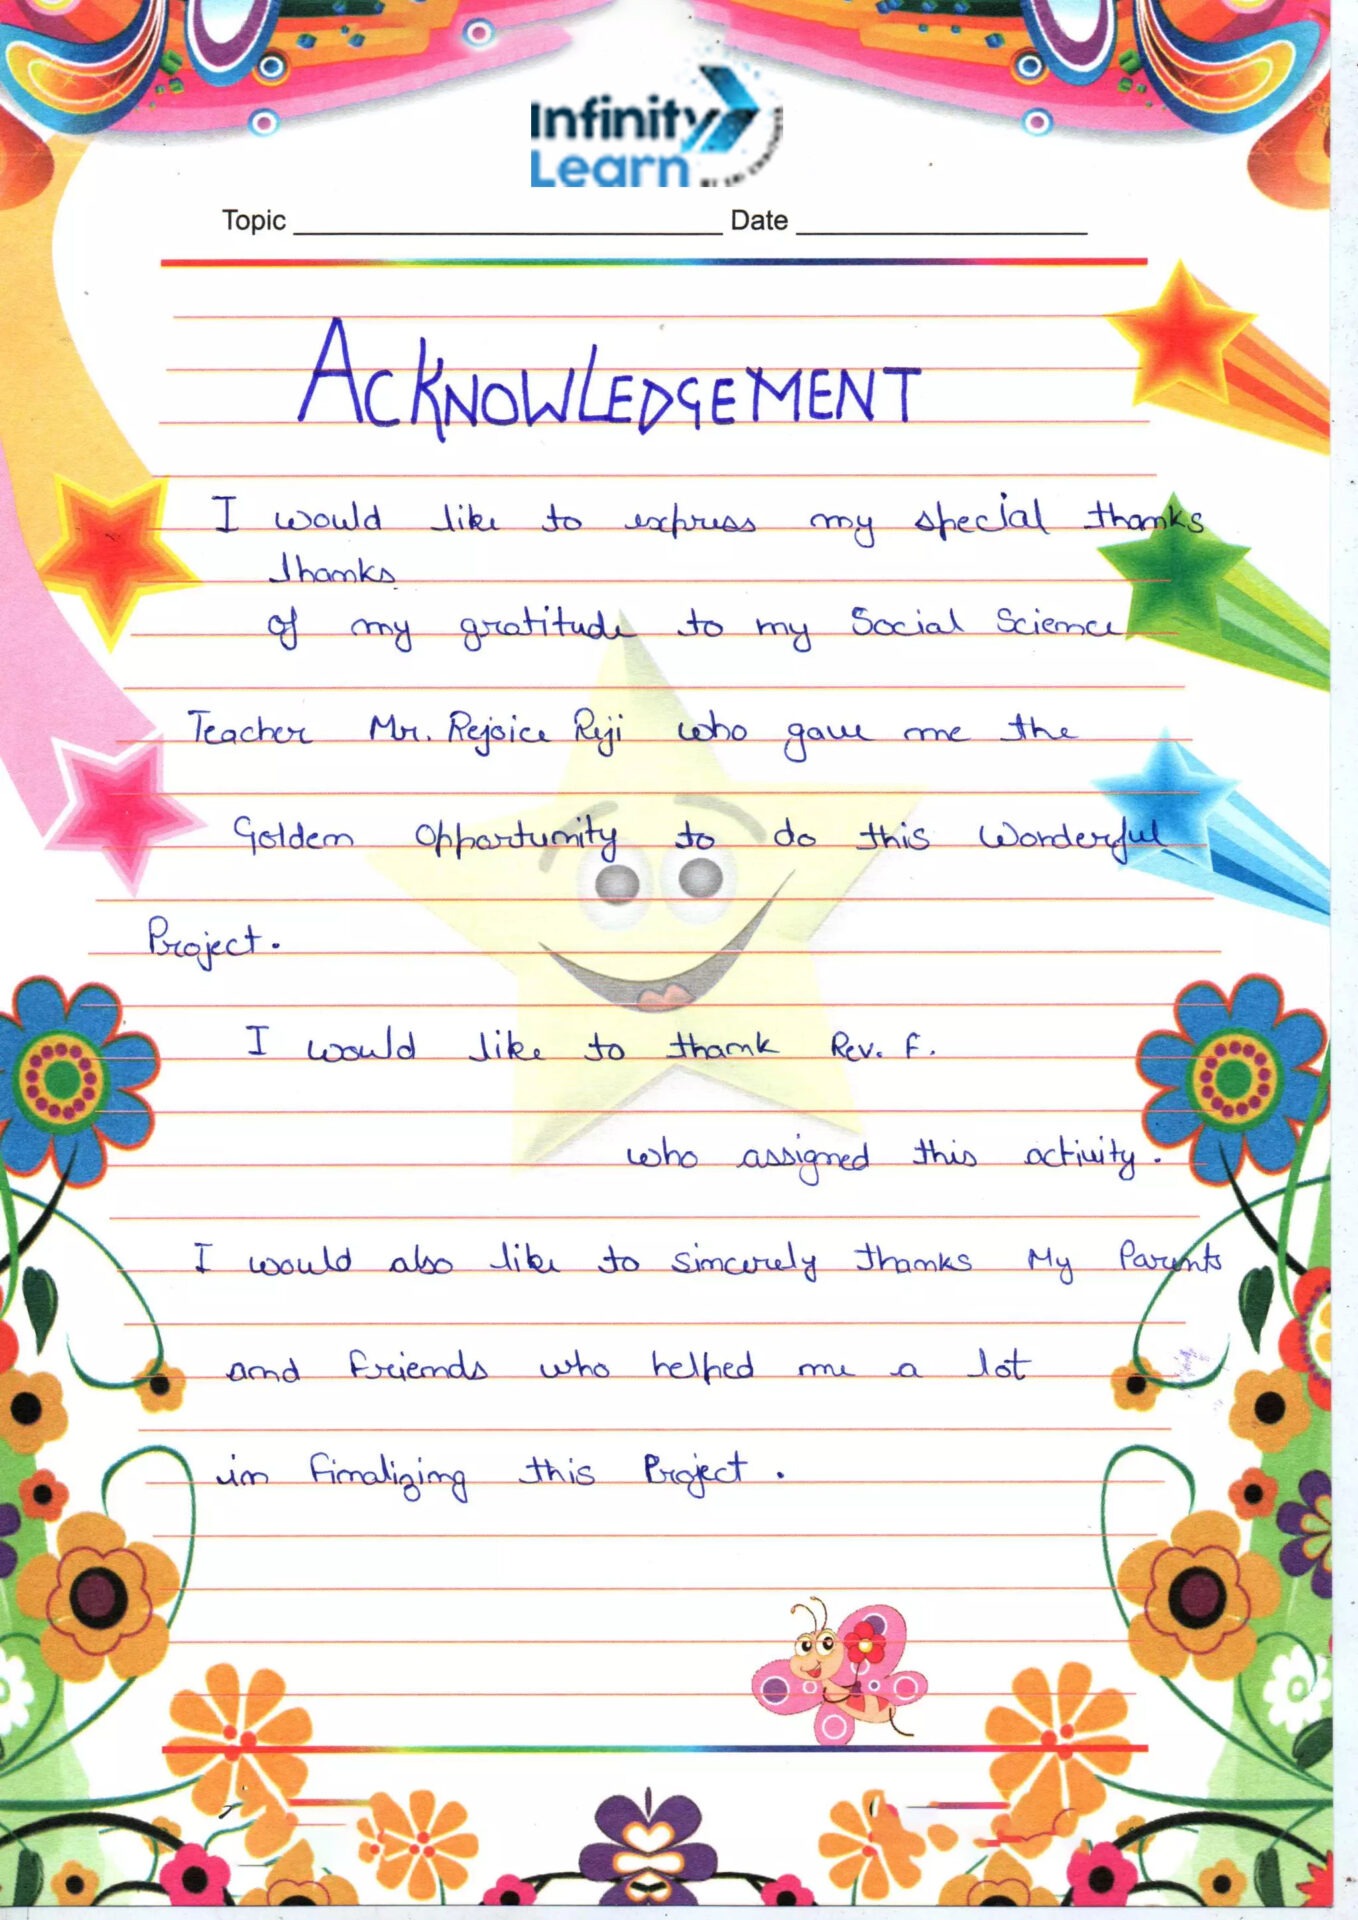 Infinity
Learn
Topic Date
ACKNOWLEDGEMENT
I would like to express my special thanks
thanks
of my gratitude to my Social Science
Teacher Mr. Rejoice Reji who gave me the
Golden Opportunity to do this Wonderful
Project.
I would like to thank Rev. F.
who assigned this activity.
I would also like to sincerely thanks My Parents
and Friends who helped me a lot
in Finalizing this Project.